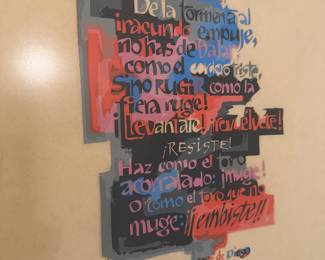 De la tormenta al
iracundo empuje,
no has de balar,
como el cordero triste,
Sino RUGIR como la
fiera ruge!
¡Levántate! ¡revuélvete!
¡RESISTE!
Haz como el toro
acorralado: ¡muge!
o como el toro que no
muge: ¡¡embiste!!
de Diego